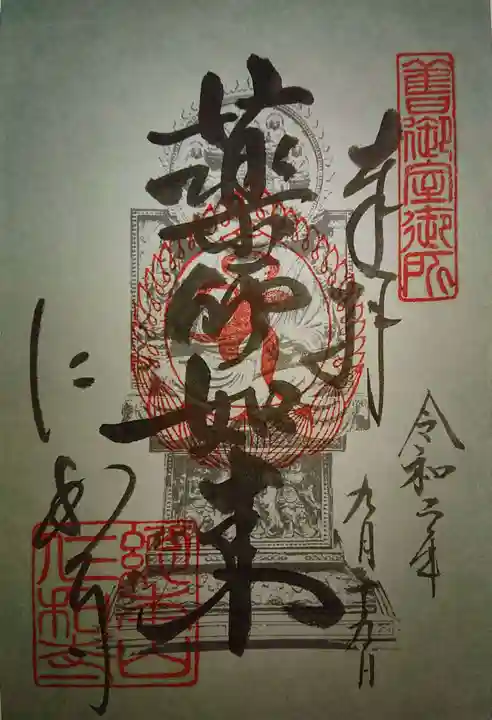 舊御室御所
奉拝
令和二年
九月十九日
薬師如来
仁和寺
総本山仁和寺